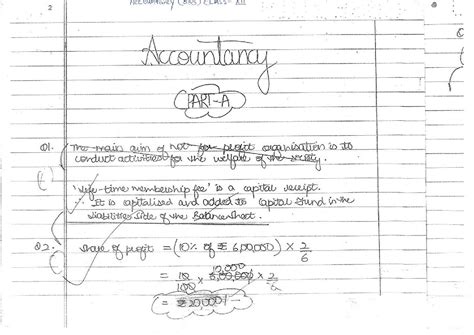 2
Accountancy (055) CLASS - XII
Accountancy
PART-A
Q1. The main aim of not for profit organisation is to
conduct activities for the welfare of the society.
'Life-time membership fee' is a capital receipt.
It is capitalised and added to Capital Fund in the
liabilities side of the Balance Sheet.
Q2. Share of profit = (10% of ₹ 6,00,000) × 2/6
10,000
= 10/100 × 6,00,000 × 2/6
= ₹20,000/-